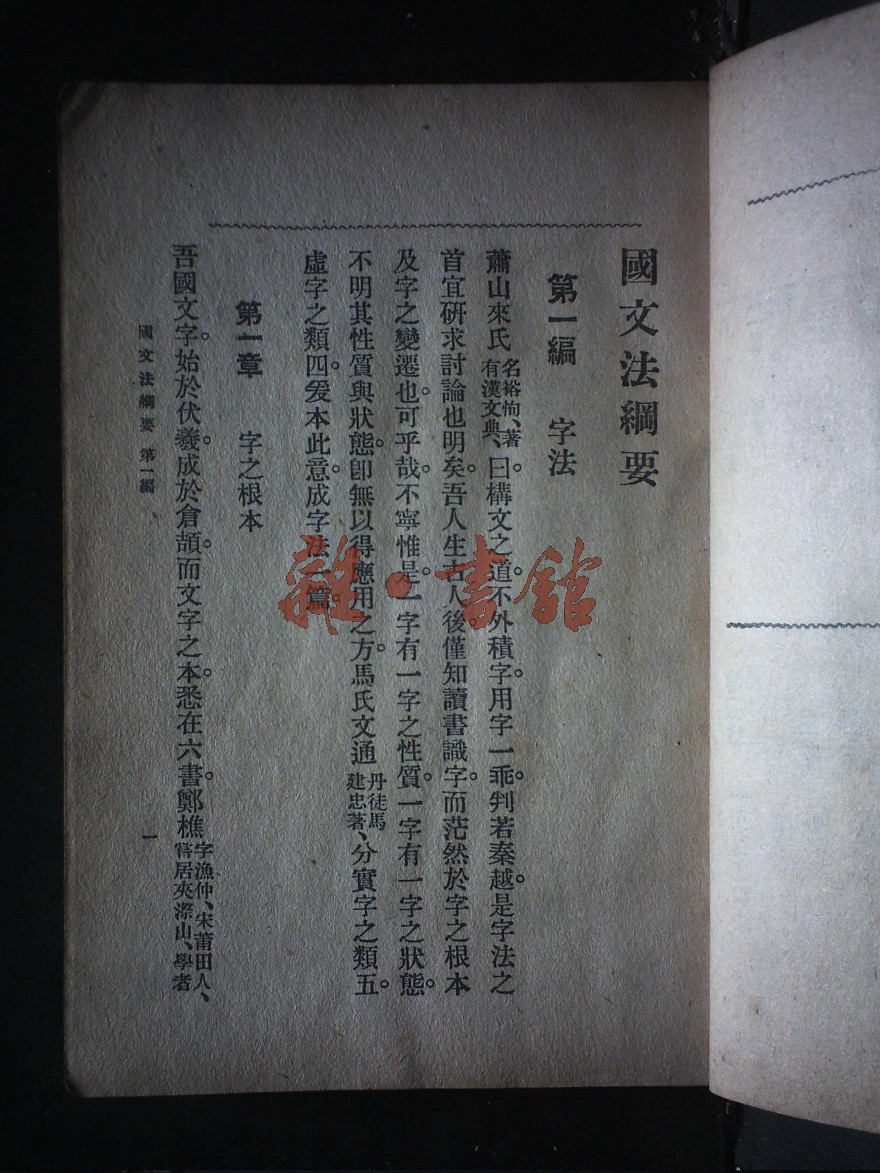 國文法綱要
第一編　字法
蕭山來氏名裕恂、著有漢文典、曰。構文之道。不外積字。用字一乖。判若秦越。是字法之
首宜研求討論也明矣。吾人生古人後。僅知讀書識字。而茫然於字之根本
及字之變遷也。可乎哉。不寧惟是。一字有一字之性質。一字有一字之狀態。
不明其性質與狀態。卽無以得應用之方。馬氏文通丹徒馬建忠著、分實字之類五。
虛字之類四。爰本此意。成字法一篇。
第一章　字之根本
吾國文字。始於伏羲。成於倉頡。而文字之本。悉在六書。鄭樵字漁仲、宋莆田人、嘗居夾漈山、學者
國文法綱要　第一編
一
雜·書館